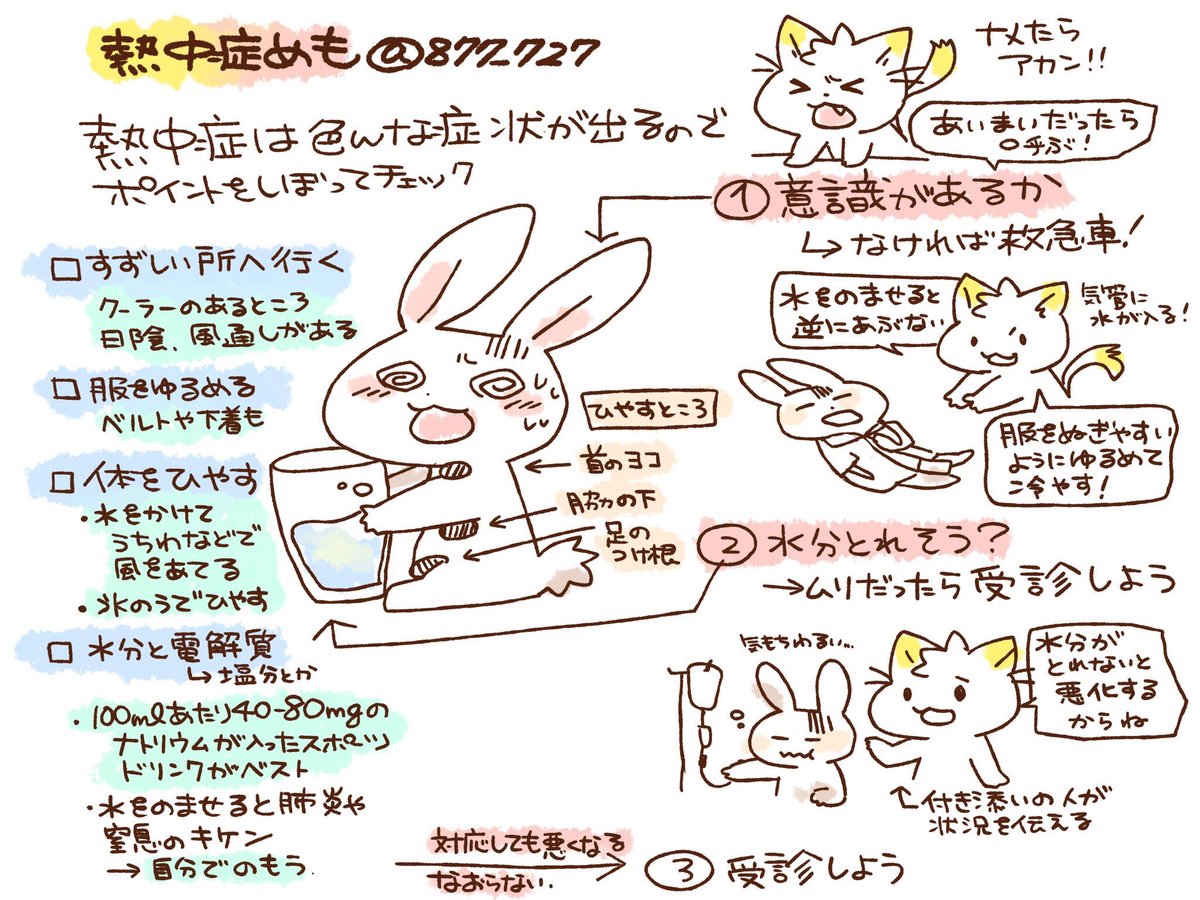 熱中症めも@877_727
熱中症は色んな症状が出るので
ポイントをしぼってチェック
ナメたら
アカン!!
あいまいだったら
呼ぶ!
①意識があるか
↳なければ救急車!
水をのませると
逆にあぶない
気管に
水が入る!
服をぬぎやすい
ようにゆるめて
冷やす!
□すずしい所へ行く
クーラーのあるところ
日陰、風通しがある
□服をゆるめる
ベルトや下着も
□体をひやす
・水をかけて
うちわなどで
風をあてる
・氷のうでひやす
□水分と電解質
↳塩分とか
・100mlあたり40-80mgの
ナトリウムが入ったスポーツ
ドリンクがベスト
・水をのませると肺炎や
窒息のキケン
→自分でのもう
ひやすところ
首のヨコ
脇の下
足の
つけ根
②水分とれそう?
→ムリだったら受診しよう
気もちわるい…
水分が
とれないと
悪化する
からね
付き添いの人が
状況を伝える
対応しても悪くなる
なおらない.
③受診しよう